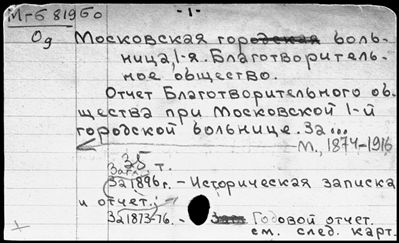 М-б 81960
- 1 -
Од Московская городская боль-
ница, 1-я. Благотворитель-
ное общество.
Отчет Благотворительного об-
щества при Московской 1-й
городской больнице. За...
М., 1874-1916
35 т.
Загл.
За 1896 г. - Историческая записка
и отчет.;
За 1873-76. - Годовой отчет.
см. след. карт.